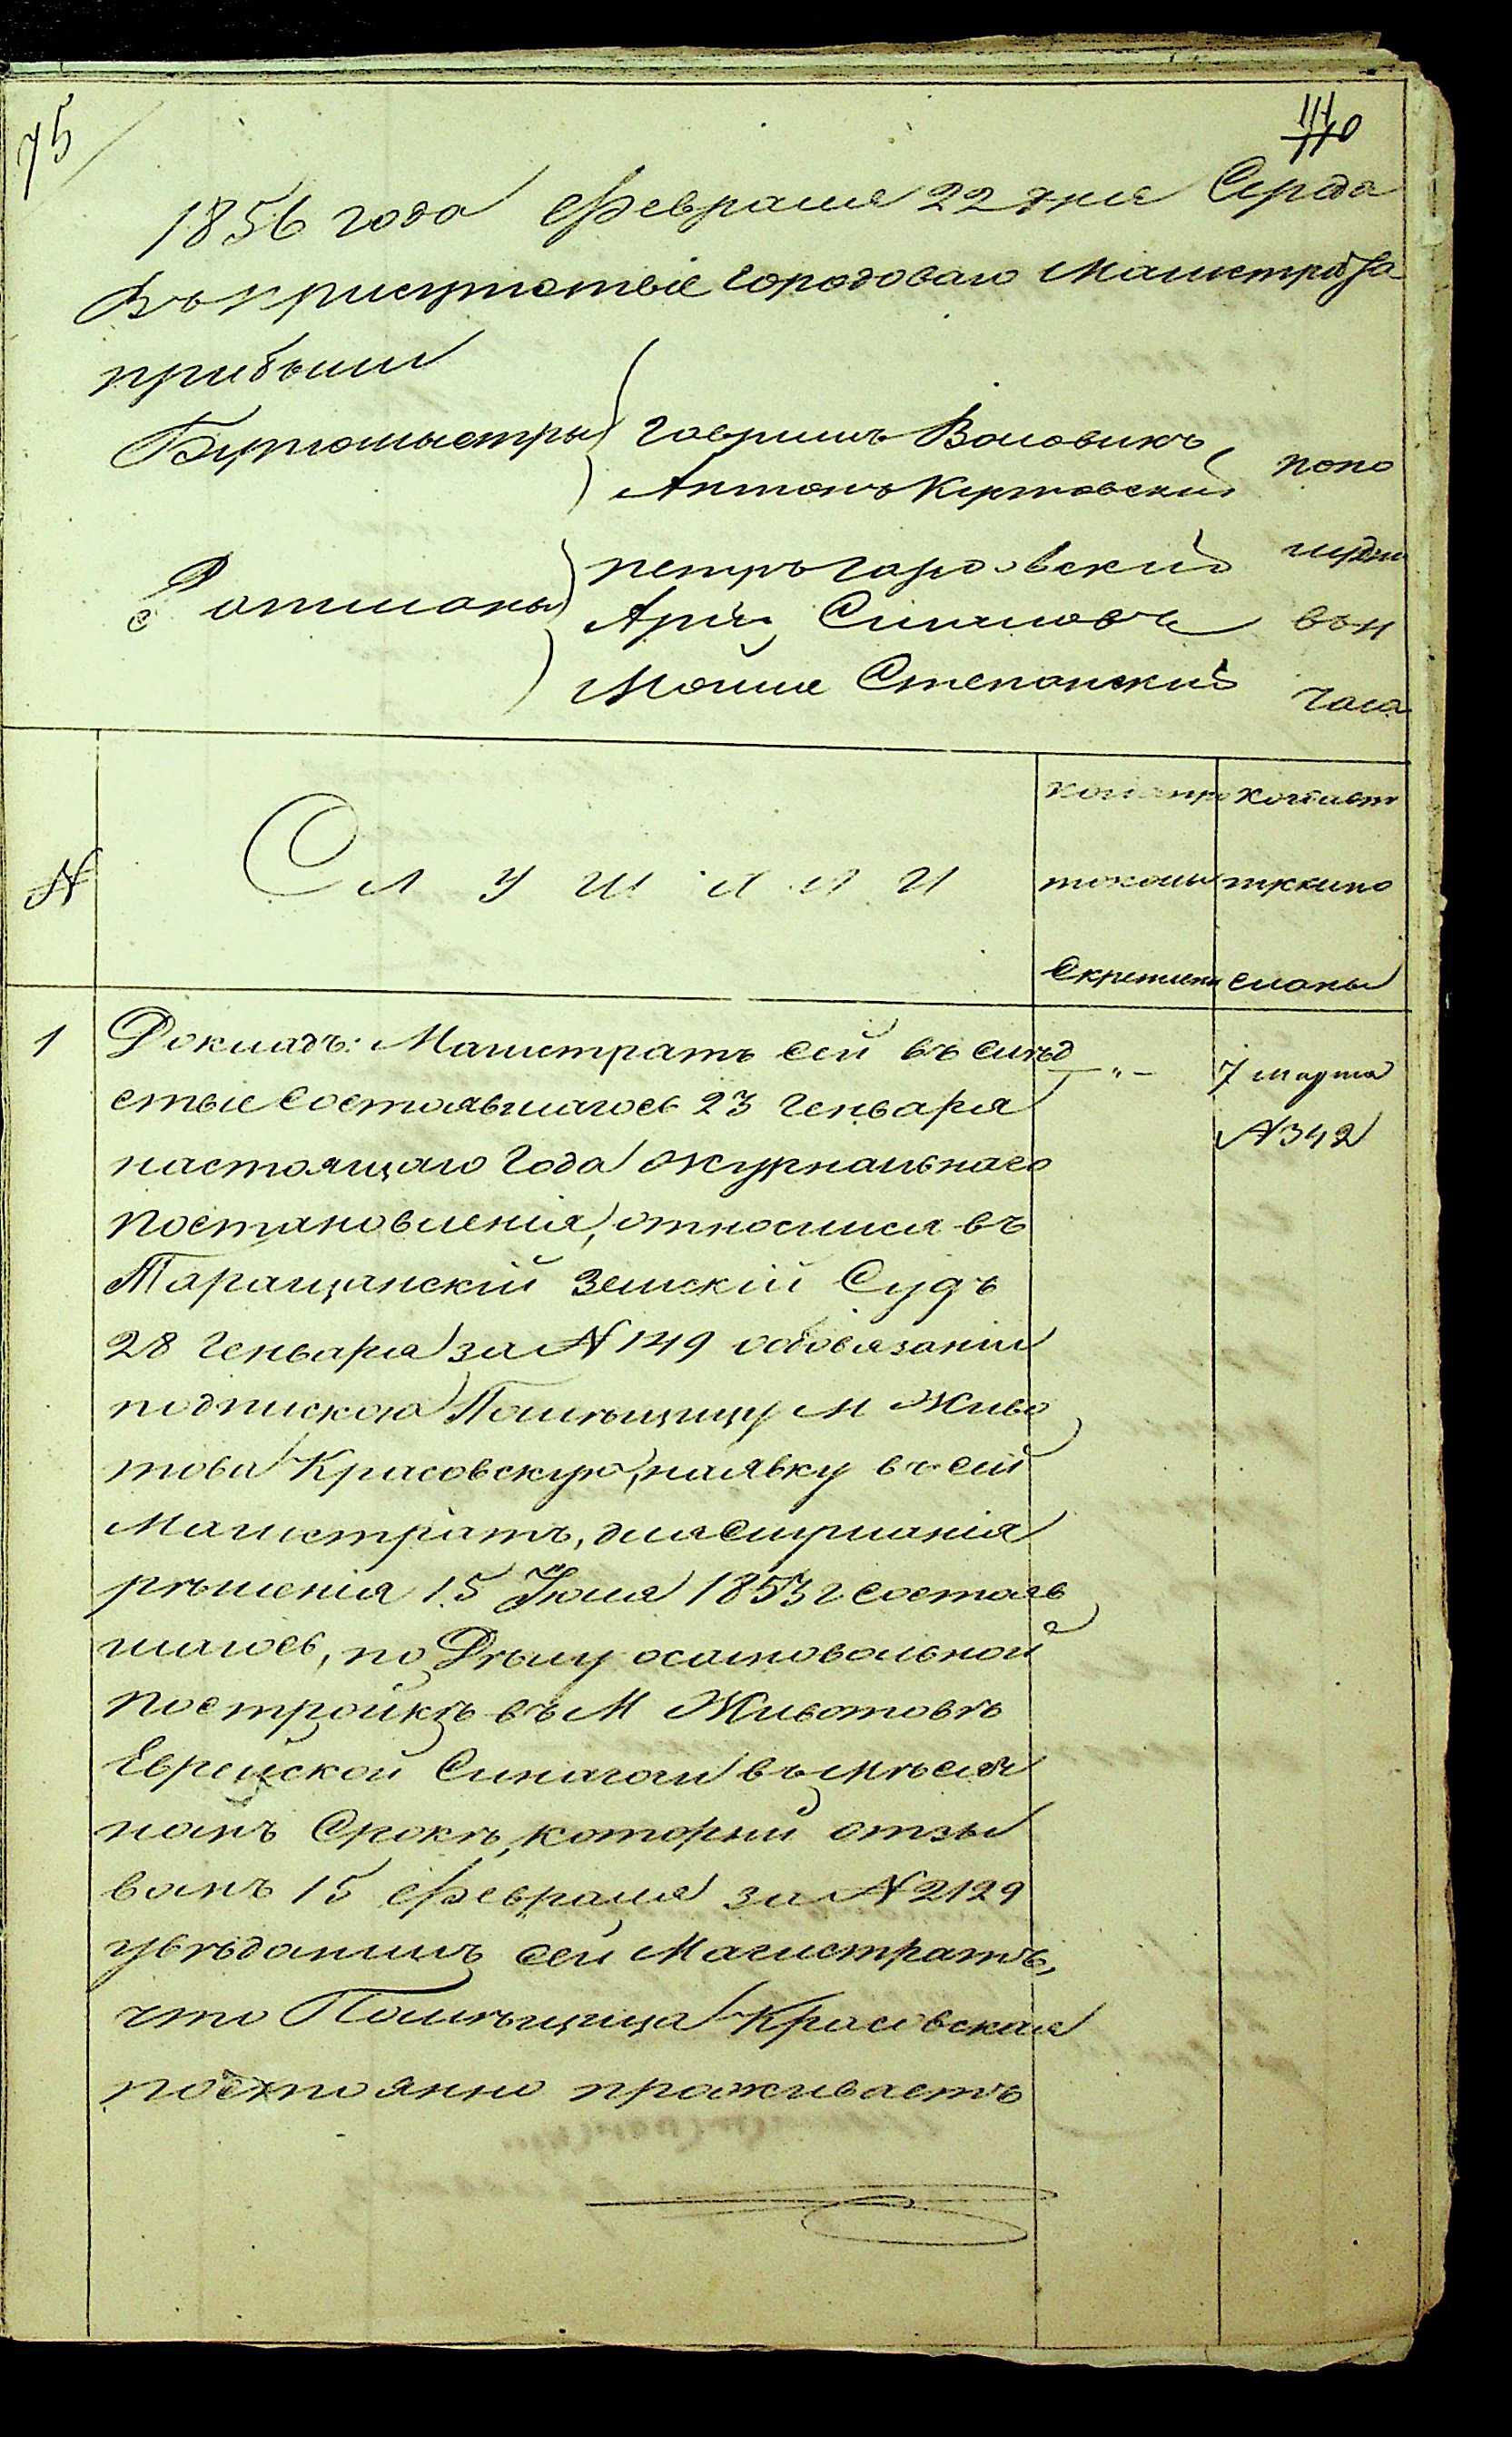 75
111
110
1856 года Февраля 22 дня Среда
Въ присутствіе Городоваго Магистрата
прибыли
Бургомистры Гаврилъ Воловикъ
Антонъ
попо
Ратманы Петръ Гаро вский
Арія
въ 11
Мошие Степанский
часа
№
Слушали
токолы
Скреплены
сланы
1
Докладъ: Магистратъ сей въ слѣд
7 марта
ствіе состоявшагось 23 Генваря
№ 342
настоящаго Года журнальнаго
постановленія, относился въ
Таращанскій Земскій Судъ
28 Генваря за № 149 обовязаніи
подпискою Помѣщицу М Живо
това Красовскую, наявку въ сей
Магистратъ, для слушанія
рѣшенія 15 Іюля 1853 г состояв
шагось, по Дѣлу осамовольной
постройкѣ въ М Животовѣ
Еврейской Синагоги въ мѣсяч
номъ Срокѣ, который отзы
вомъ 15 Февраля за № 2129
увѣдомилъ сей Магистратъ,
что Помѣщица Красовская
постоянно проживаетъ